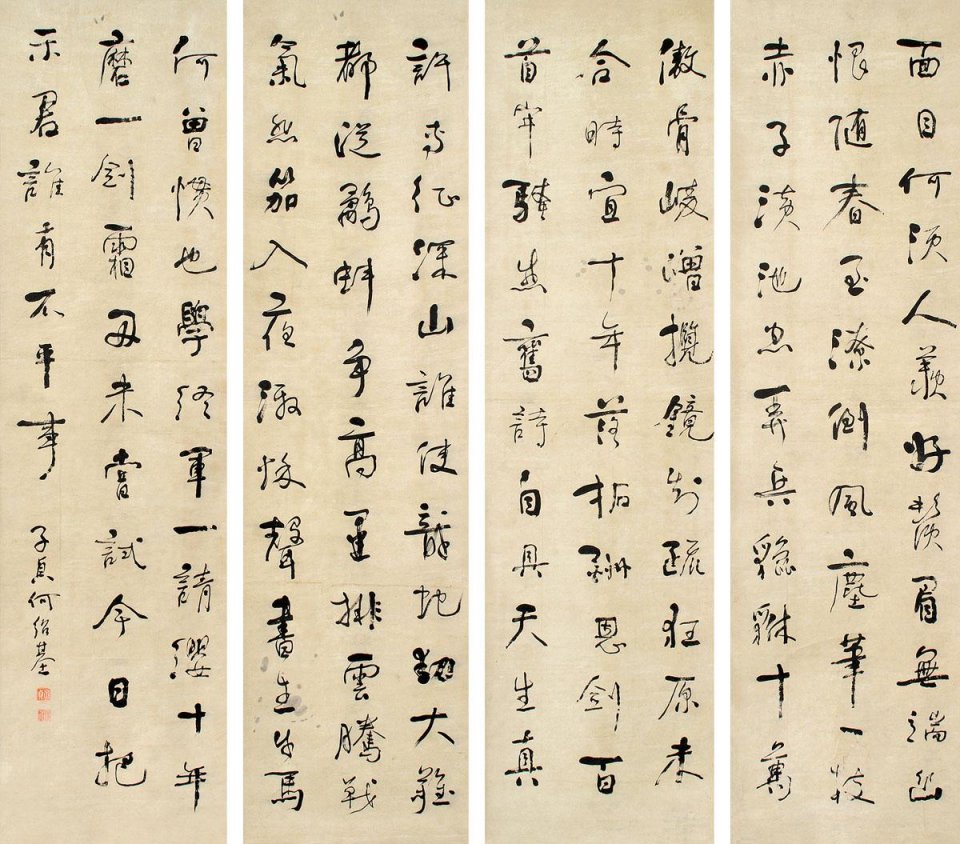 面目何須人羨好鬚眉無端幽
恨隨春至潦倒風塵筆一枝
赤子潢池忽弄兵貔貅十萬
傲骨崚嶒攬鏡知疏狂原未
合時宜十年落拓酬恩劍百
首牢騷舊詩自具天生真
許專征深山誰使龍蛇大難
都從鷸蚌爭高壘排雲騰戰
氣悲笳入夜激聲書生生馬
何曾慣也學終軍一請纓十年
磨一劍霜刃未嘗試今日把
示君誰有不平事
子貞何紹基